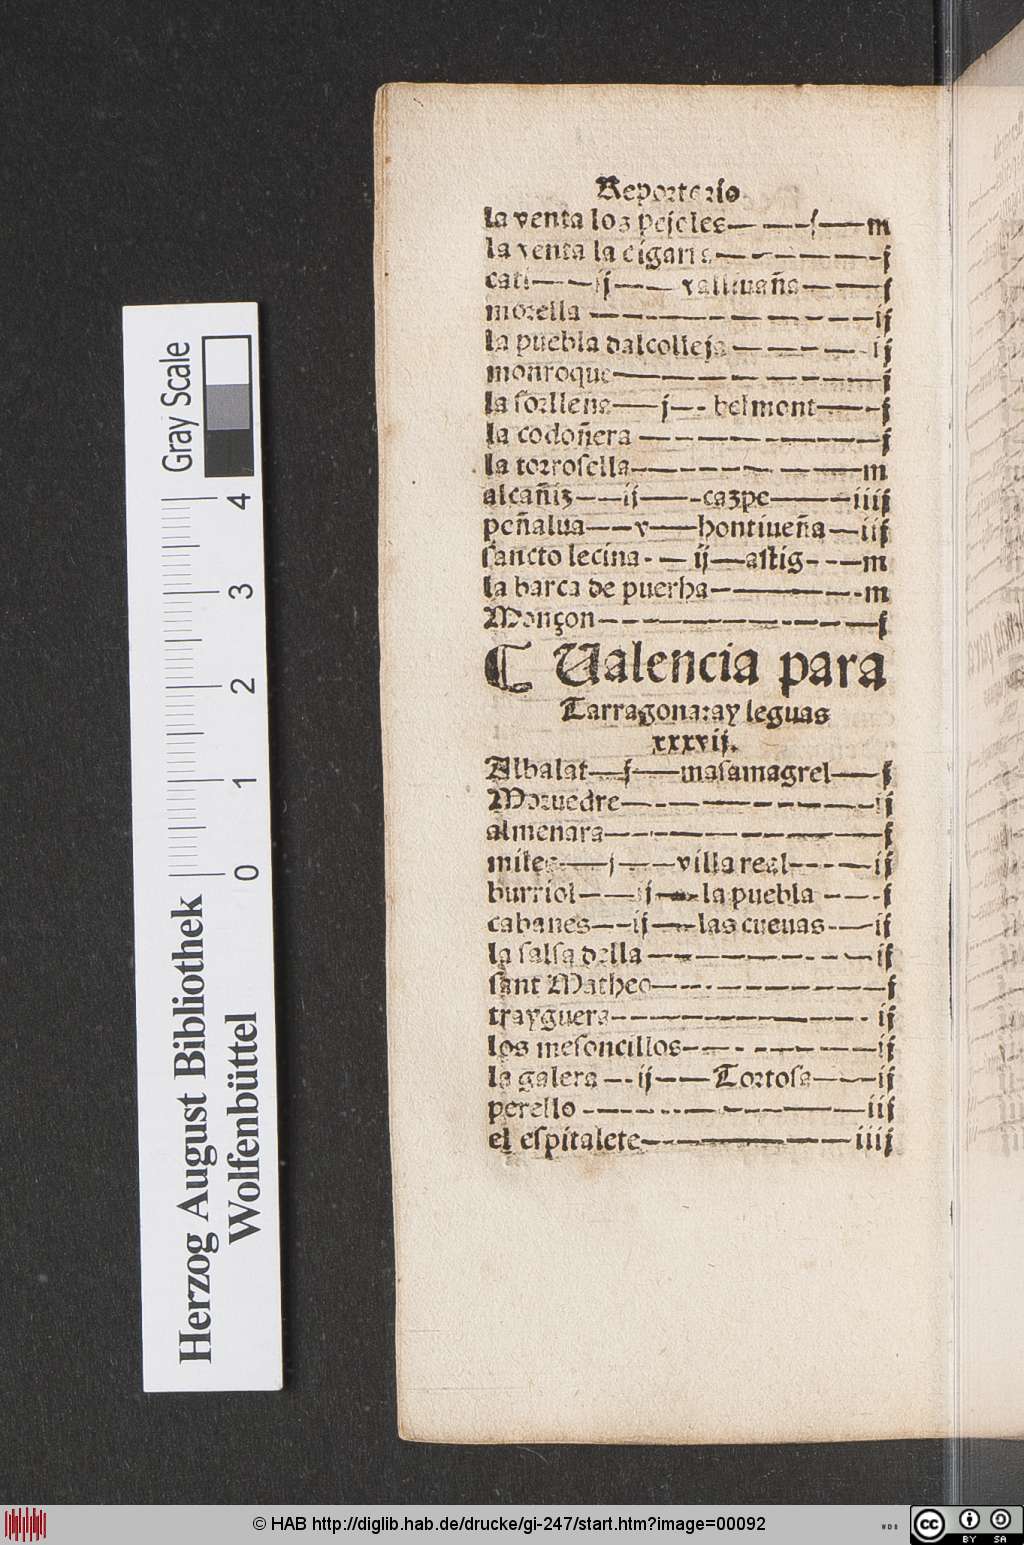 Reporterio
la venta los pejeles — j — m
la venta la cigarra — j
cati — ij — vallivaña — j
morella — ij
la puebla dalcolleja — ij
monroque — j
la forllena — j — belmont — j
la codoñera — j
la torrosella — m
alcañiz — ij — cazpe — iiij
peñalua — v — hontiueña — iij
sancto lecina — ij — astig — m
la barca de puerha — m
Monçon — j
¶ Ualencia para
Tarragona: ay leguas
xxxvij.
Albalat — j — masamagrel — j
Moruedre — ij
almenara — j
miles — j — villa real — ij
burriol — ij — la puebla — j
cabanes — ij — las cueuas — ij
la salsa della — ij
sant Matheo — j
trayguera — ij
los mesoncillos — ij
la galera — ij — Tortosa — ij
perello — iij
el espitalete — iiij
Gray Scale
4 3 2 1 0
Herzog August Bibliothek
Wolfenbüttel
© HAB http://diglib.hab.de/drucke/gi-247/start.htm?image=00092
WDB
cc BY SA